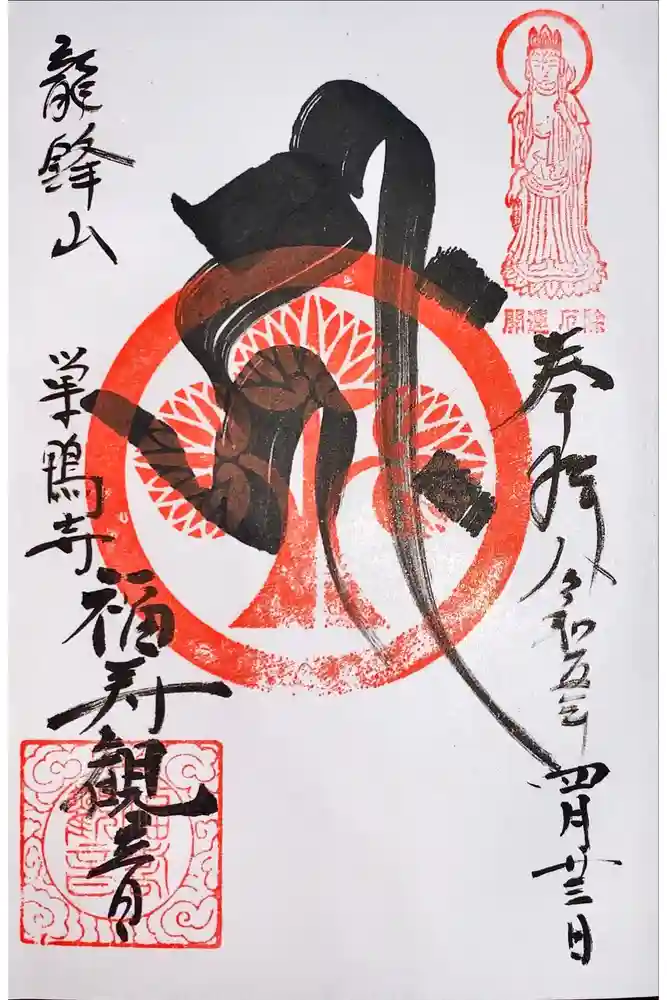 開運 厄除
奉拝
令和五年
四月廿三日
龍鋒山
巣鴨寺
福寿観音